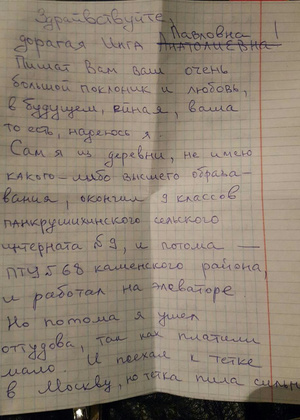 Здравствуйте,
Павловна !
дорогая Инга Анатолиевна
Пишит Вам ваш очень
большой поклоник и любовь,
в будущем, ваша
то есть, надеюсь я
Сам я из деревни, не имею
какого-либо высшего образа-
вания, окончил 9 классов
панкрушихинского сельского
интерната №9, и потома —
ПТУ №68 каменского района,
и работал на элеваторе
Но потома я ушел
оттудова, так как платили
мало. И поехал к тетке
в Москву, но тетка пила сильно